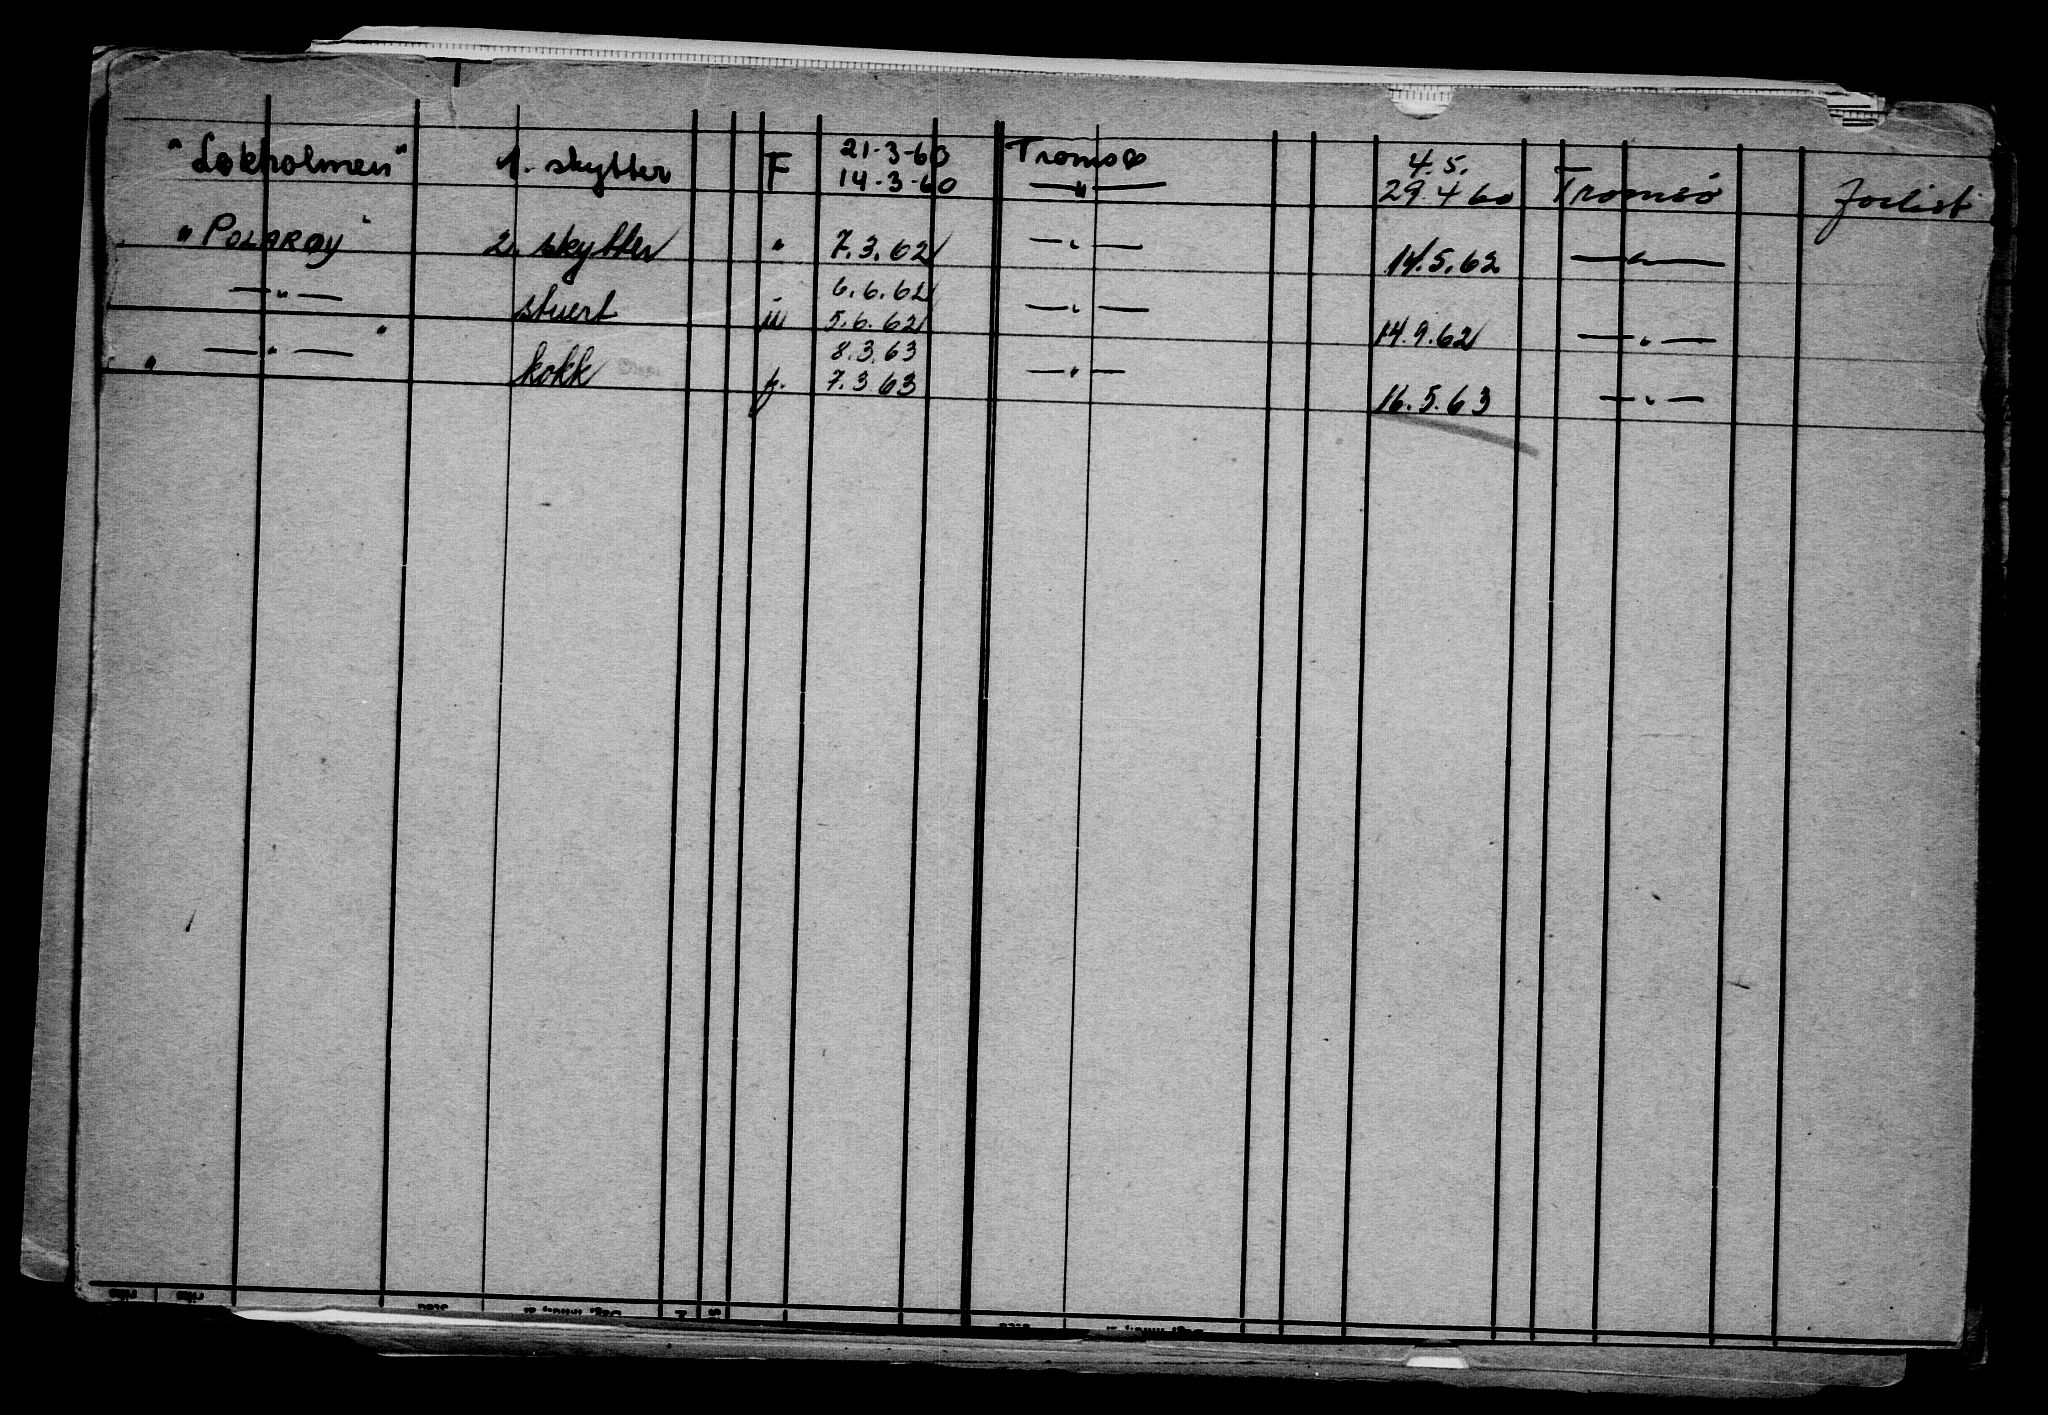 "Lokholmen" 1. skytter F 21-3-60 Tromsø 4.5.
14-3-60 —"— 29.4 60 Tromsö Forlist
"POLARØY" 2. skytter " 7.3.62 —"— 14.5.62 —"—
6.6.62
—"— stuert " 5.6.62 —"— 14.9.62 —"—
8.3.63
" —"— " kokk f. 7.3 63 —"— 16.5.63 —"—